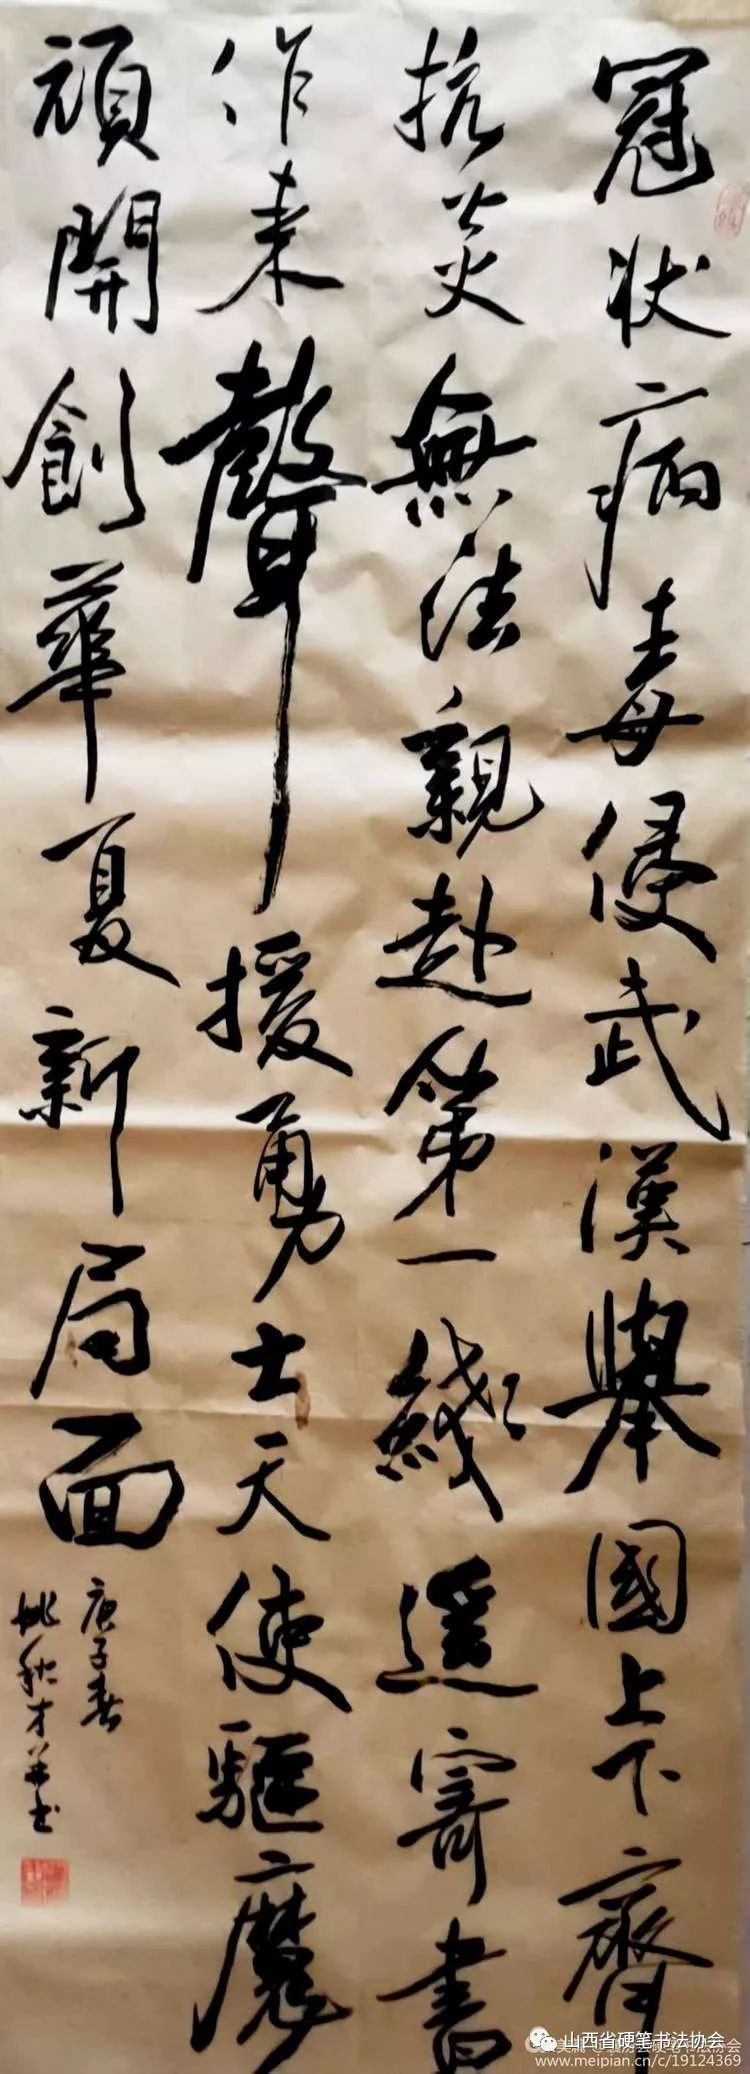 冠状病毒侵武漢舉國上下齊
抗炎無法親赴第一綫遥寄書
作来聲援勇士天使驅魔
頑開創華夏新局面
庚子春
姚秋才并书
山西省硬笔书法协会
www.meipian.cn/c/19124369